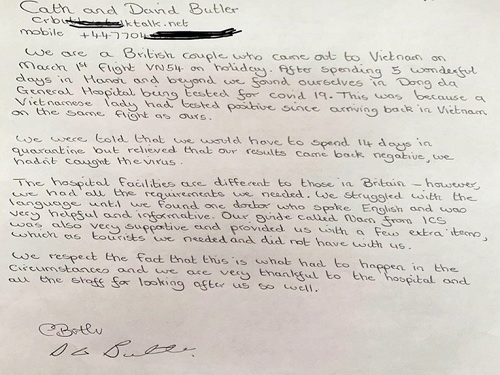 Cath and David Butler
ktalk.net
mobile +447704
We are a British couple who came out to Vietnam on
March 1st flight VN54 on holiday. After spending 5 wonderful
days in Hanoi and beyond we found ourselves in Dong da
General Hospital being tested for covid 19. This was because a
Vietnamese lady had tested positive since arriving back in Vietnam
on the same flight as ours.
We were told that we would have to spend 14 days in
quarantine but relieved that our results came back negative, we
hadn't caught the virus.
The hospital facilities are different to those in Britain - however,
we had all the requirements we needed. We struggled with the
language until we found one doctor who spoke English and was
very helpful and informative. Our guide called Nam from ICS
was also very supportive and provided us with a few extra items,
which as tourists we needed and did not have with us.
We respect the fact that this is what had to happen in the
circumstances and we are very thankful to the hospital and
all the staff for looking after us so well.
CButler
Butler